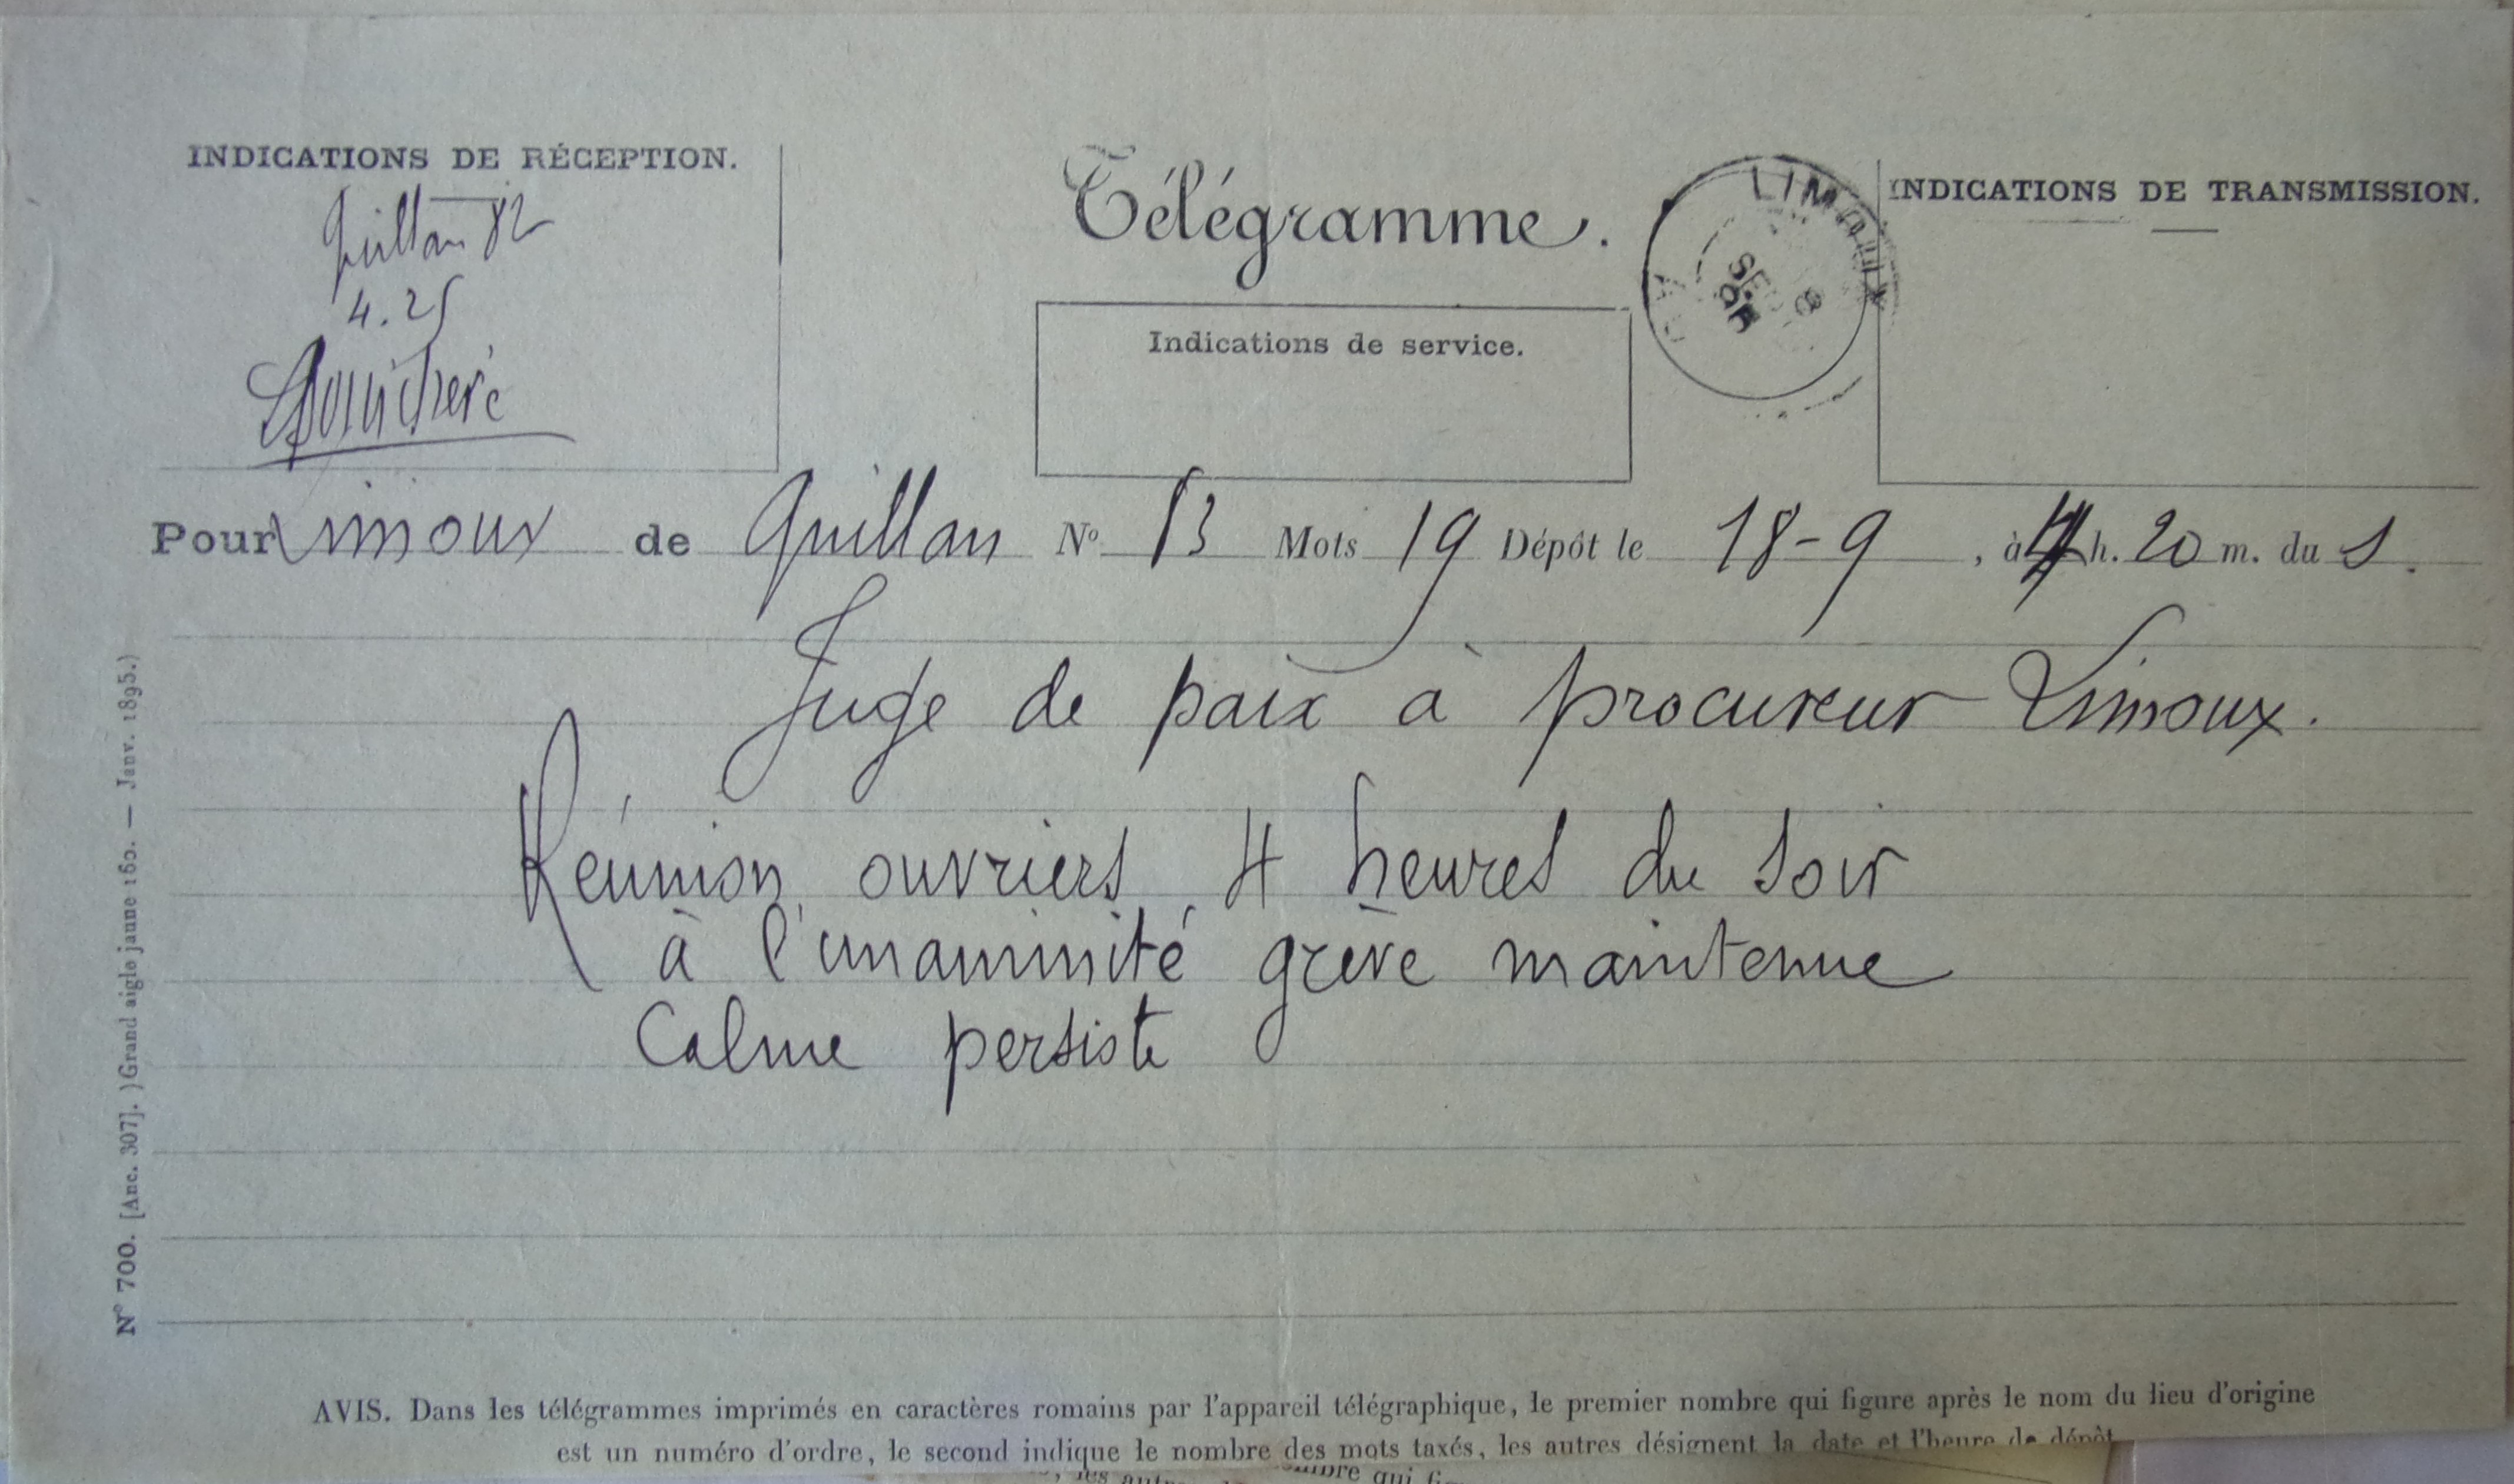 INDICATIONS DE RÉCEPTION.
Quillan 82
4.25
Télégramme.
LIMOUX
SEPT
95
INDICATIONS DE TRANSMISSION.
Indications de service.
Pour Limoux de Quillan N° 13 Mots 19 Dépôt le 18-9, à 4 h. 20 m. du s.
Juge de paix à procureur Limoux.
Réunion ouvriers 4 heures du soir
à l'unanimité grève maintenue
Calme persiste
N° 700. [Anc. 307].) Grand aigle jaune 160. — Janv. 1895.)
AVIS. Dans les télégrammes imprimés en caractères romains par l'appareil télégraphique, le premier nombre qui figure après le nom du lieu d'origine
est un numéro d'ordre, le second indique le nombre des mots taxés, les autres désignent la date et l'heure de dépôt